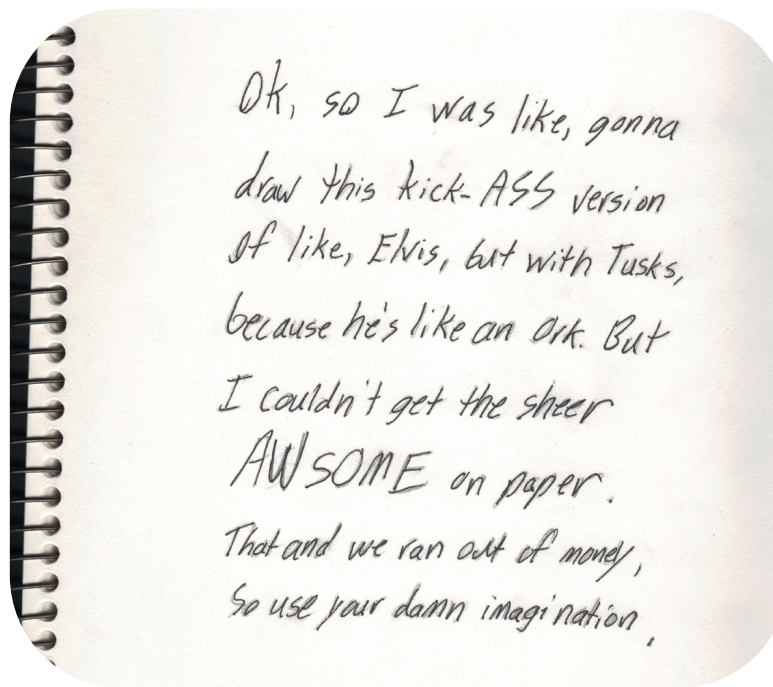 Ok, so I was like, gonna
draw this kick-ASS version
of like, Elvis, but with Tusks,
because he's like an Ork. But
I couldn't get the sheer
AWSOME on paper.
That and we ran out of money,
So use your damn imagination.